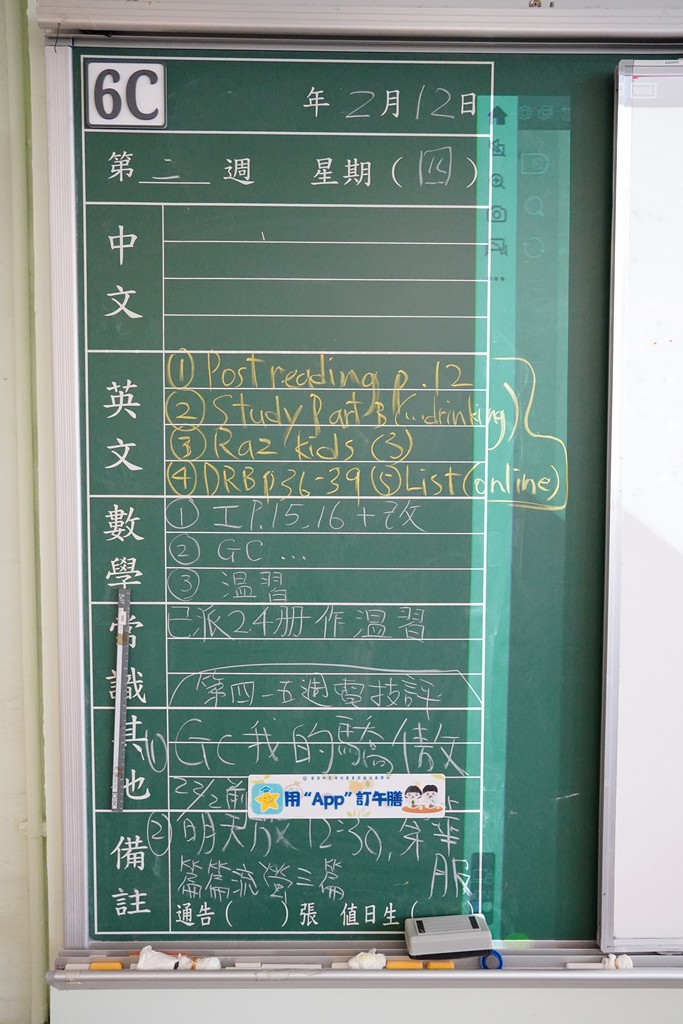 6C
年 2月12日
第 二 週 星期 ( 四 )
中文
英文
① Post reading p.12
② Study Part B (...drinking)
③ Raz kids (3)
④ DRB p36-39 ⑤ List (online)
數學
① 工P.15,16+改
② GC ...
③ 溫習
常識
已派2.4冊作溫習
第四-五週電技評
其他
① GC我的驕傲
23/2前
用“App”訂午膳
備註
② 明天 12:30,
篇篇流螢三篇 服
通告( )張 值日生(